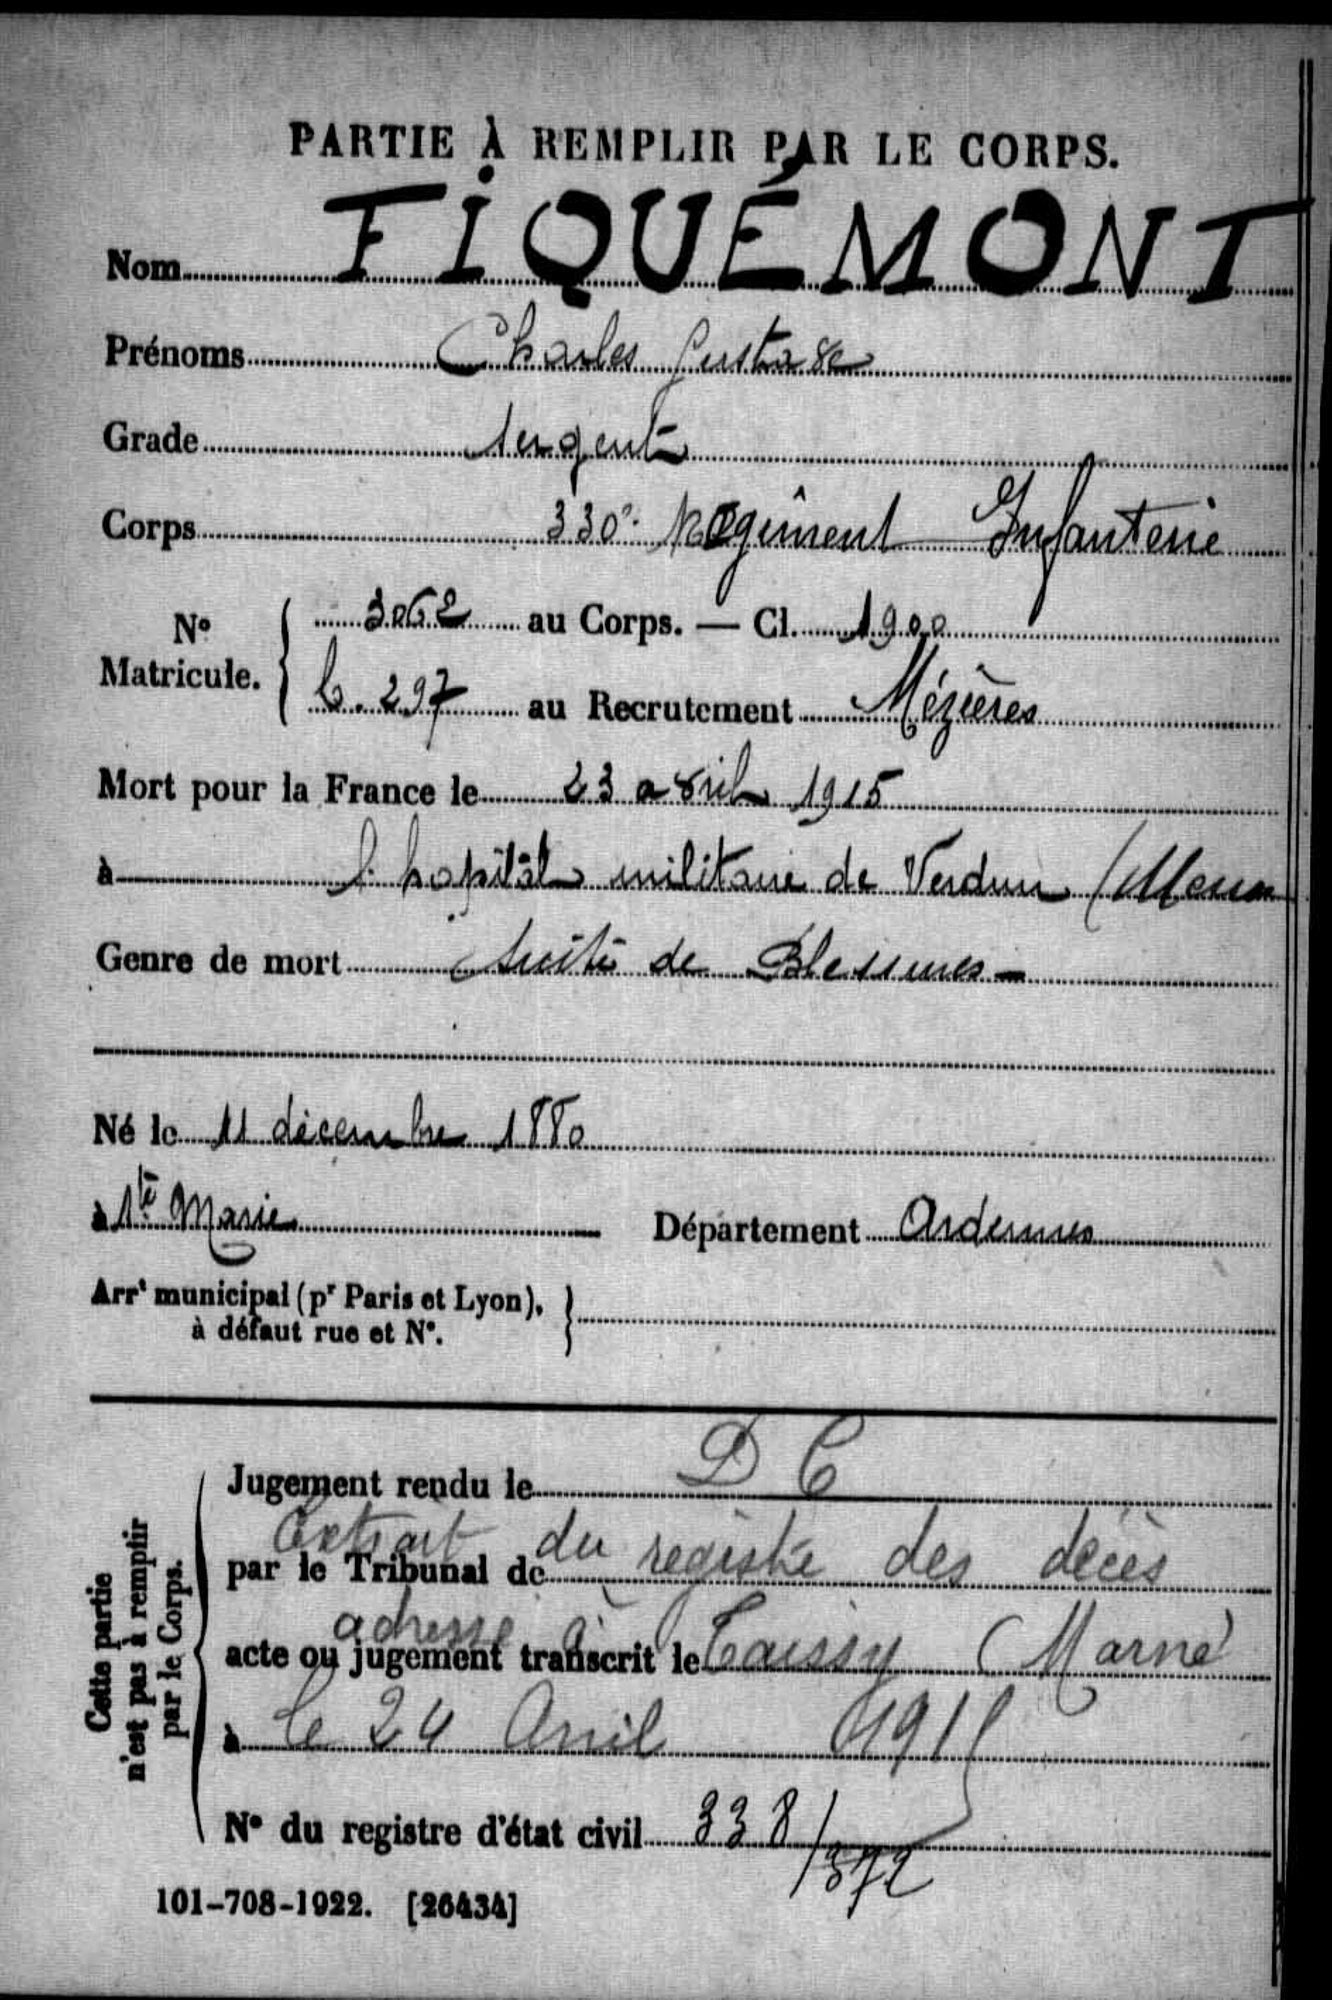 PARTIE À REMPLIR PAR LE CORPS.
Nom FIQUÉMONT
Prénoms Charles Gustave
Grade Sergent
Corps 330e Régiment Infanterie
N° Matricule. { 3062 au Corps. — Cl. 1900
C. 297 au Recrutement Mézières
Mort pour la France le 23 avril 1915
à l'hopital militaire de Verdun (Meuse
Genre de mort Suite de Blessures
Né le 11 décembre 1880
à Ste Marie Département Ardennes
Arrt municipal (pr Paris et Lyon), }
à défaut rue et N°.
Cette partie
n'est pas à remplir
par le Corps.
Jugement rendu le D C
Extrait du registre des décès
par le Tribunal de
adressé à Taissy (Marne
acte ou jugement transcrit le
à le 24 Avril 1915
N° du registre d'état civil 338/372
101-708-1922. [26434]